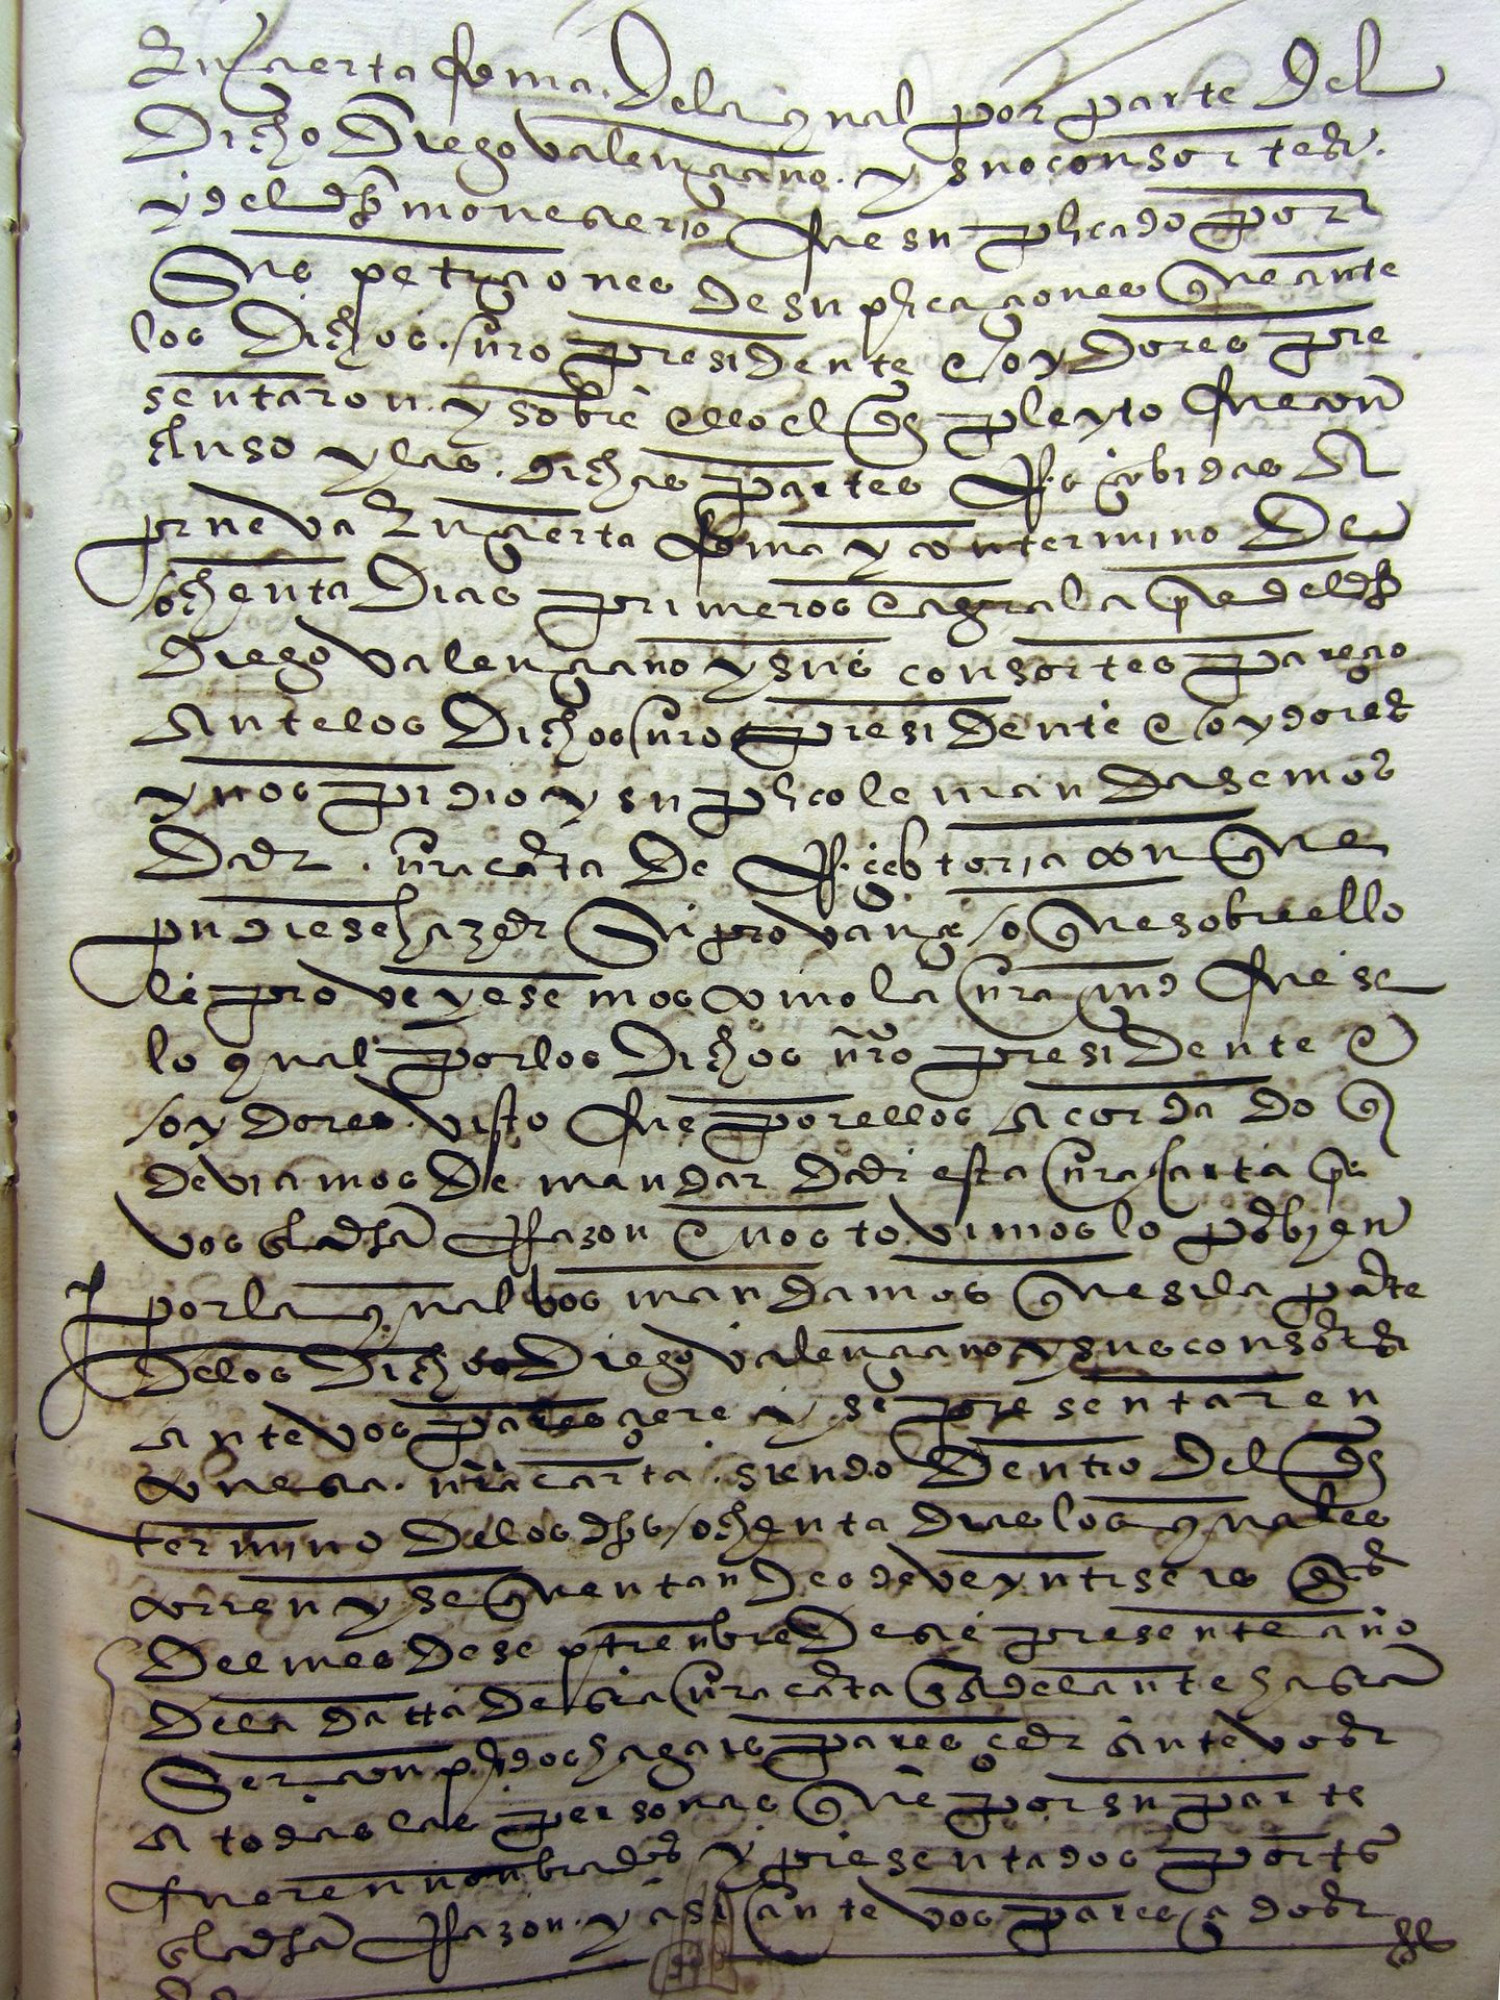 En çierta forma. De la qual por parte del
Dicho Diego valençiano. y sus consortes.
y del dho monesterio fue suplicado por
Sus petiçiones de suplicaçiones que ante
los Dichos nro presidente e oydores pre
sentaron. y sobre ello el dho pleyto fue con
cluso y las dichas partes Rescibidas A
prueva En çierta forma y con termino De
ochenta Dias primeros e agora la pte del dho
Diego valençiano y sus consortes pareçio
Ante los Dichos nro presidente e oydores
y nos pidio y suplico le mandasemos
Dar. nra carta De Reçebtoria con que
pudiese hazer Su provança o que sobre ello
le proveyesemos como la nra md fuese
lo qual por los Dichos nro presidente e
oydores visto fue por ellos Acordado q
deviamos De mandar Dar esta nra carta pa
vos En la dha Razon e nos tovimoslo por bien
por la qual vos mandamos que si la parte
De los Dichos Diego valençiano y sus consortes
Ante vos paresçiere y se presentaren
con esta. nra carta. siendo Dentro del dho
termino De los dhos ochenta dias los quales
corren y se quentan desde veynte seis
Del mes De septienbre Deste presente año
De la datta Desta nra carta En adelante hasta
Ser conplidos hagais paresçer Ante vos
A todas las personas que por su parte
fueren nonbrados y presentados por ts
En la dha Razon. y asi ante vos paresçidos